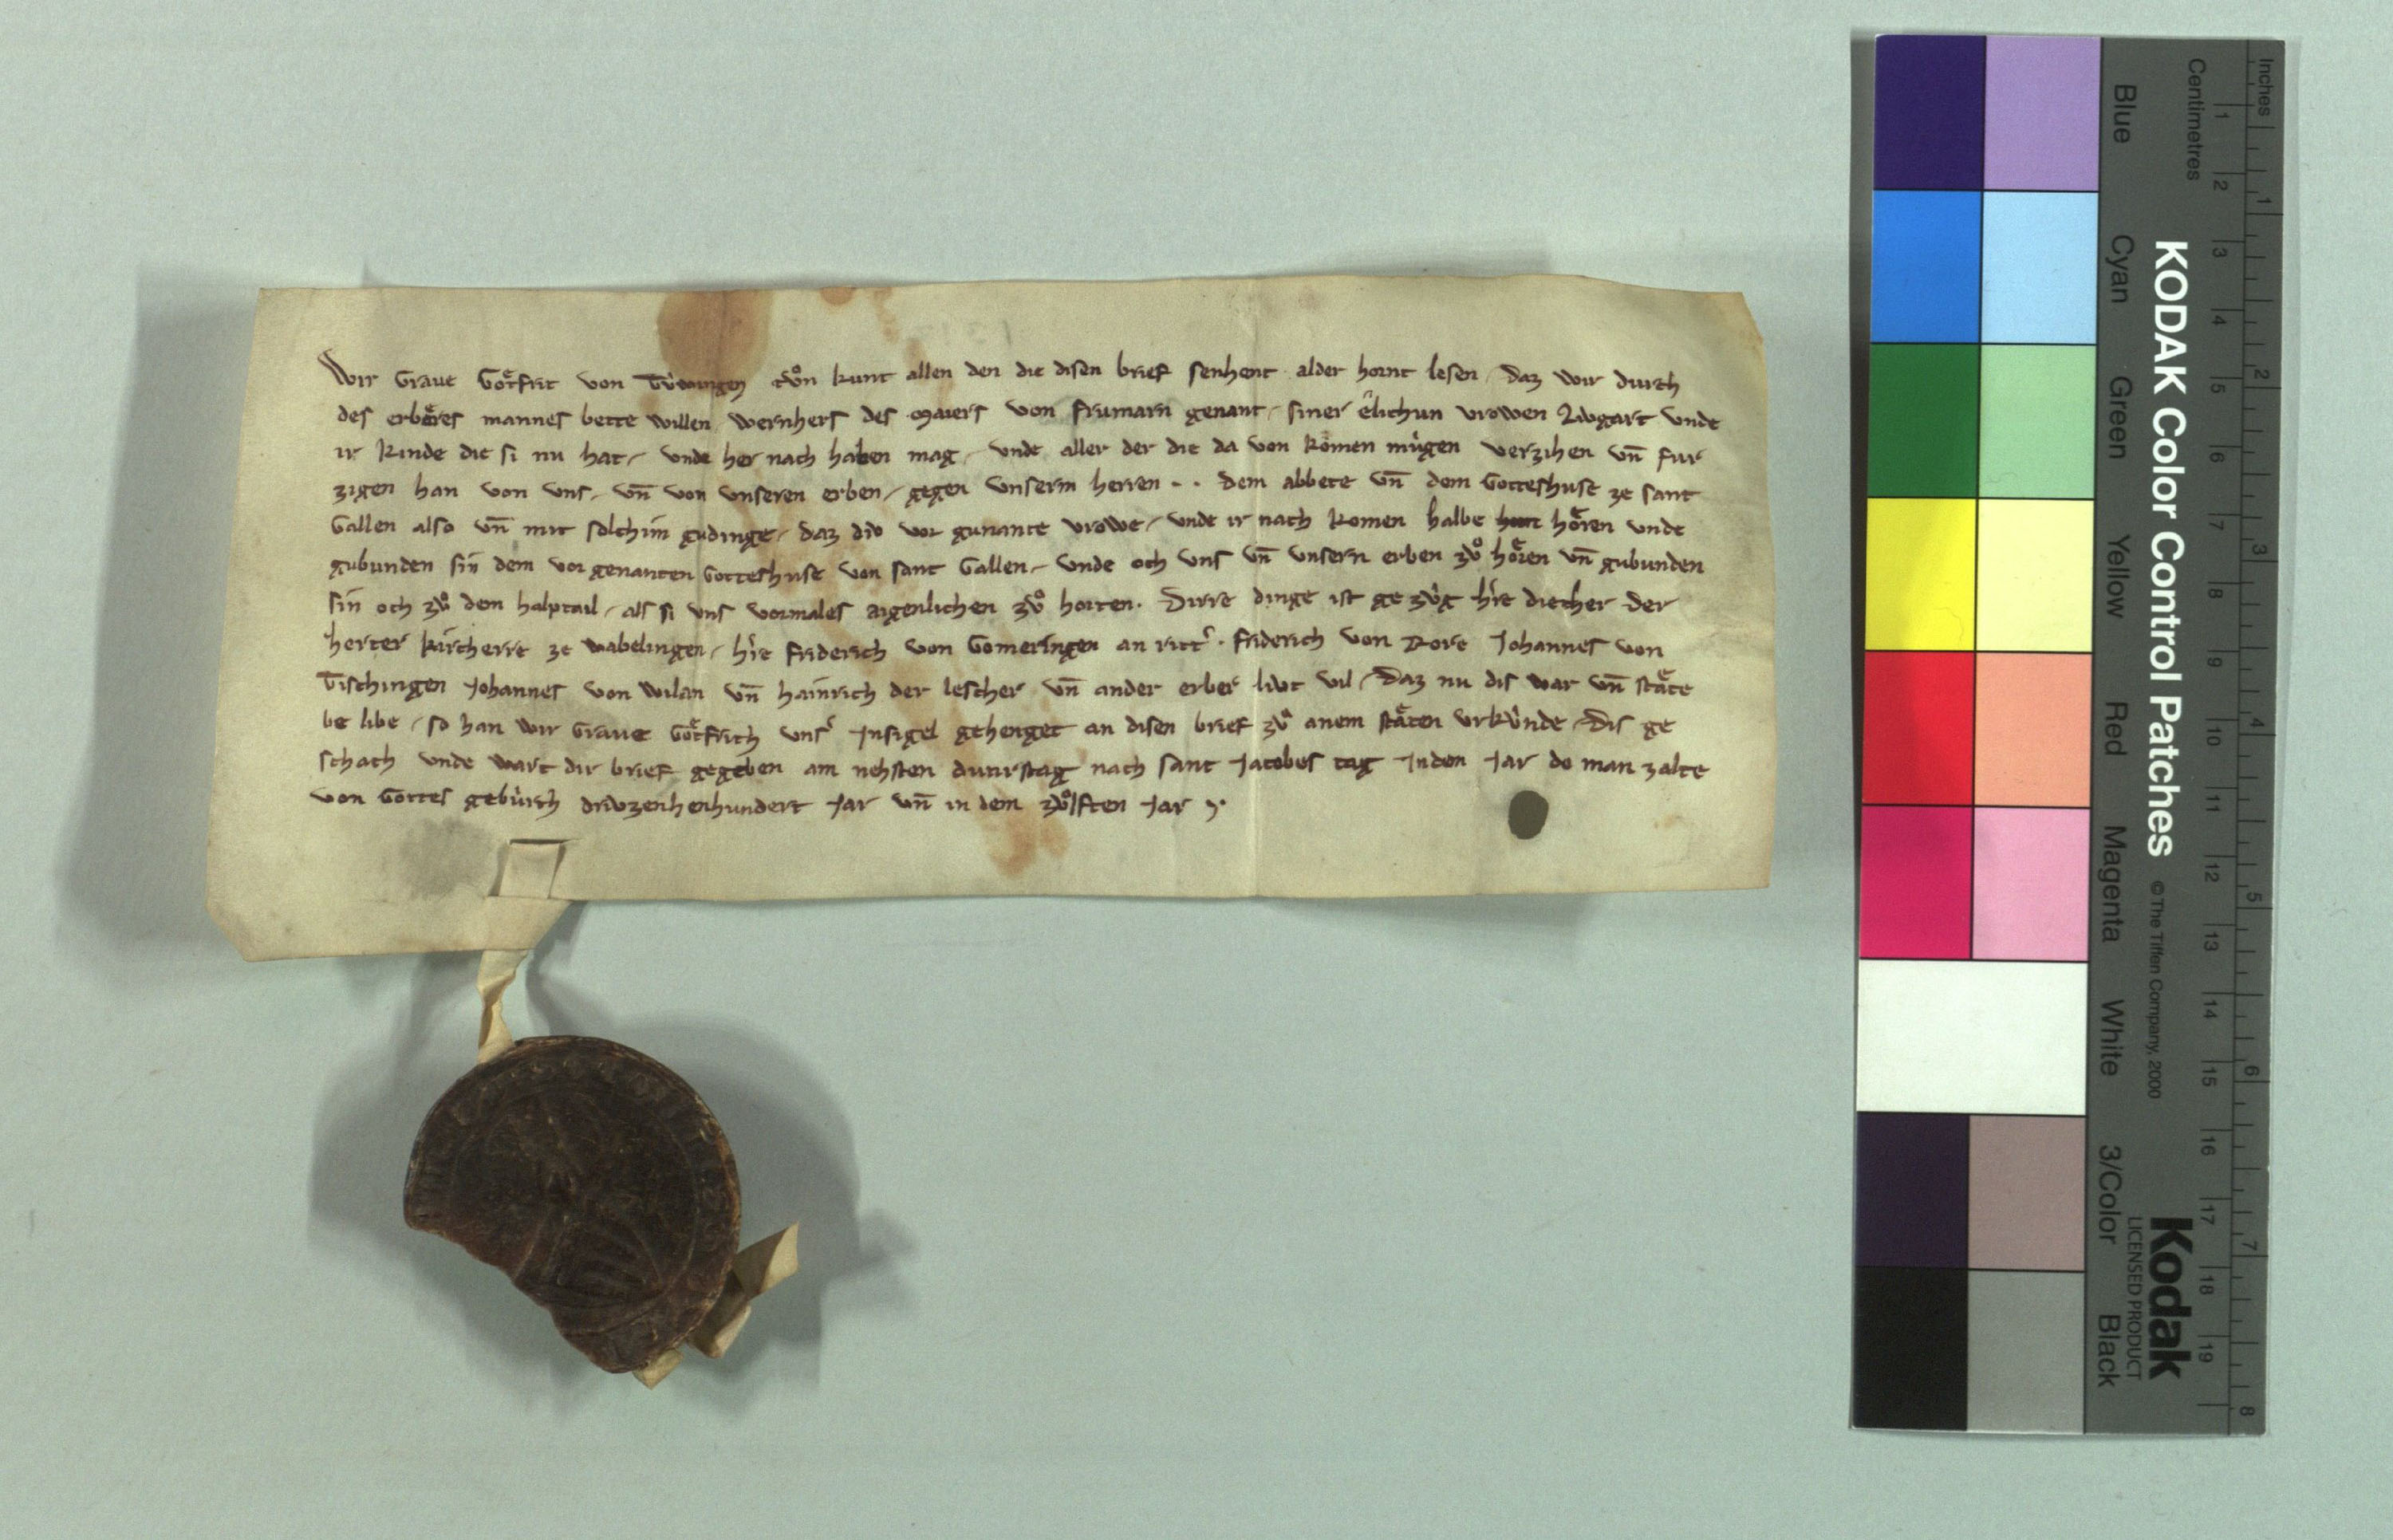 Wir Graue Gotͤfrit von Tuͥwingen tuͦn kunt allen den die disen brief senhent alder hornt lesen / daz wir durch
des erbaͤres mannes bette willen wernhers des maiers von frumarn genant / siner êlichun vrowen Livgart vnde
ir kinde die si nu hat / vnde her nach haben mag / vnde aller der die da von komen muͥgen verzihen vn̄ fur
zigen han von vns / vn̄ von vnseren erben / gegen vnserm herren ·· dem abbete vn̄ dem Gotteshuse ze sant
Gallen also vn̄ mit solchim gudinge / daz div vor gunante vrowe / vnde ir nach komen halbe hoͤren vnde
gubunden sin dem vor genanten Gotteshuse von sant Gallen / vnde och vns vn̄ vnsern erben zuͦ hoͤren vn̄ gubunden
sin och zuͦ dem halptail / als si vns vormales aigenlichen zuͦ horten · Dirre dinge ist ge zuͥg hr̓e diether Der
herter kircherre ze wabelingen / hr̓e friderich von Gomeringen an ritt̓ · friderich von Rore Johannes von
Tischingen Johannes von wilan vn̄ hainrich der lescher vn̄ ander erber livt vil / Daz nu dis war vn̄ staͤte
be libe / so han wir Graue Goͤtfrich vns̓ Jnsigel gehenget an disen brief zuͦ anem staͤten vrkuͥnde / Dis ge
schach vnde wart dir brief gegeben am nehsten dunrstag nach sant Jacobes tag Jnden Jar do man zalte
von Gottes gebuͥrth drivzenhenhundert Jar vn̄ in dem zuͦlften Jar
Inches
Centimetres
KODAK Color Control Patches
© The Tiffen Company, 2000
Kodak
LICENSED PRODUCT
Blue Cyan Green Yellow Red Magenta White 3/Color Black
1 2 3 4 5 6 7 8 9 10 11 12 13 14 15 16 17 18 19
1 2 3 4 5 6 7 8